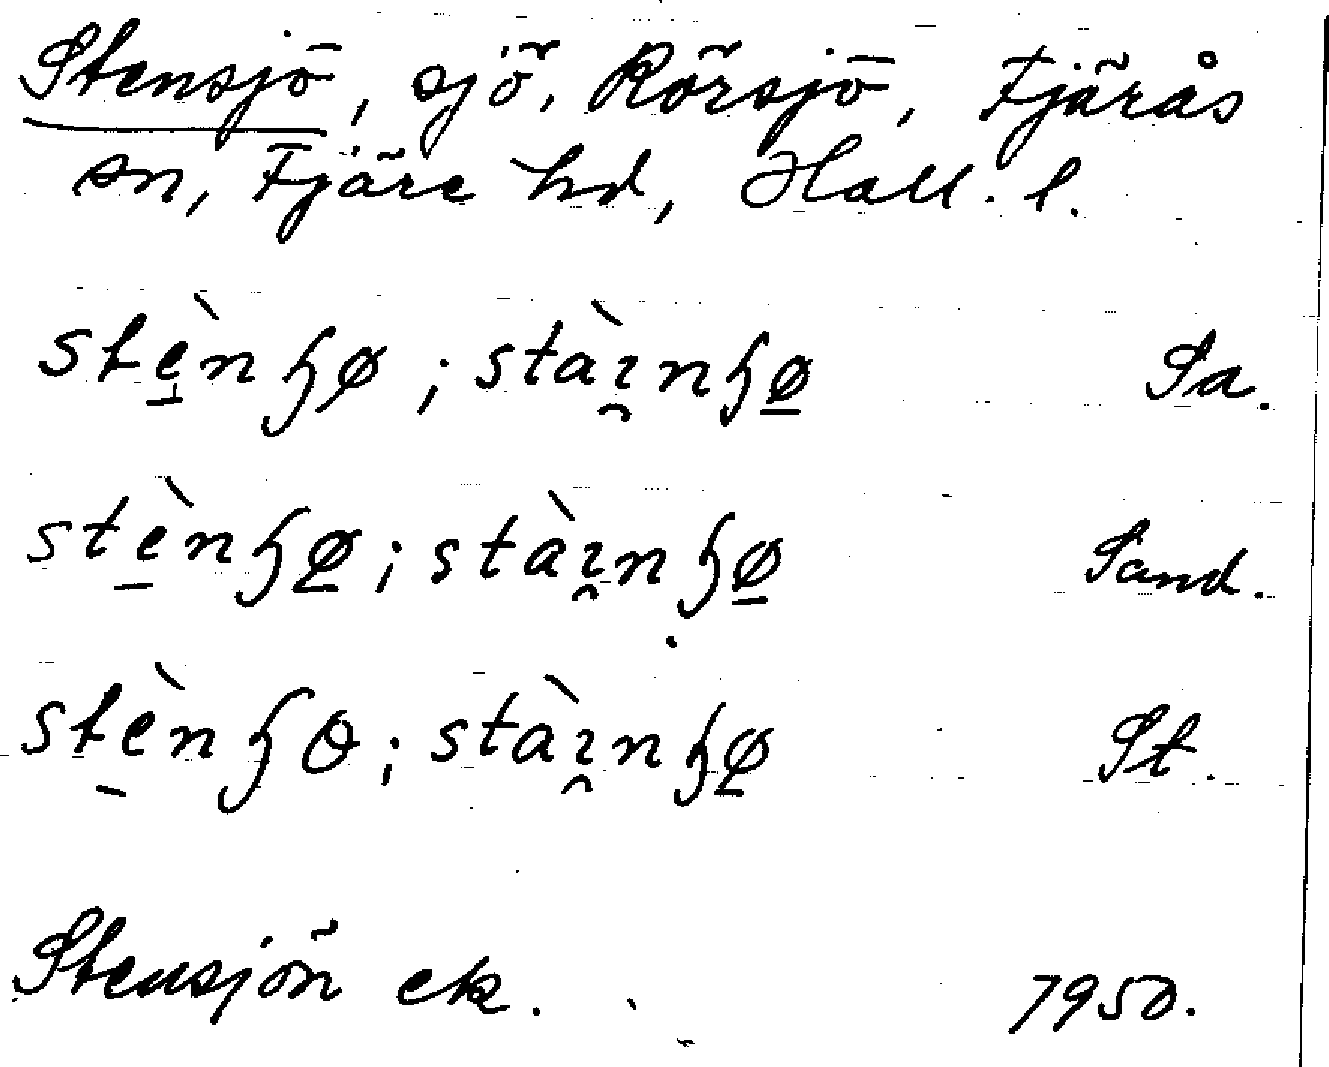 Stensjö, sjö, Rörsjö, Fjärås
sn, Fjäre hd, Hall. l.
stè̠nɧø ; stàı̯nɧø̠ Sa.
stè̠nɧø̠ ; stàı̯nɧø̠ Sand.
stè̠nɧɵ ; stàı̯nɧø̠ St.
Stensjön ek. 7950.